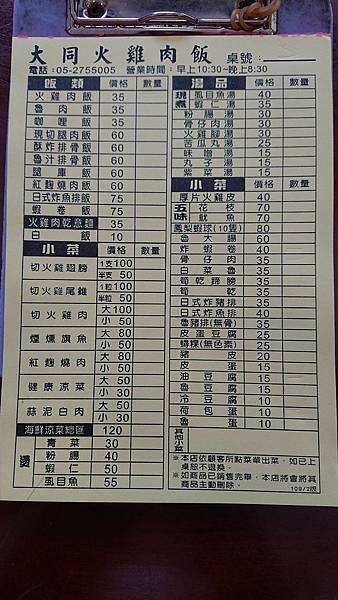 大同火雞肉飯 桌號:
電話:05-2755005 營業時間:早上10:30~晚上8:30
飯類 價格 數量
火雞肉飯 35
魯肉飯 35
咖哩飯 35
現切腿肉飯 60
酥炸排骨飯 60
魯汁排骨飯 60
腿庫飯 60
紅麴燒肉飯 60
日式炸魚排飯 75
蝦卷飯 75
火雞肉乾意麵 35
白飯 10
小菜 價格 數量
切火雞翅膀 1支100
半支 50
切火雞尾錐 1粒100
半粒 50
切火雞肉 大 100
小 50
煙燻旗魚 大 80
小 50
紅麴燒肉 大 80
小 50
健康涼菜 大 50
小 30
蒜泥白肉 大 50
小 30
海鮮涼菜總匯 120
燙
青菜 30
粉腸 40
蝦仁 50
虱目魚 55
湯品 價格 數量
現煮
虱目魚湯 40
蝦仁湯 35
粉腸湯 30
骨仔肉湯 30
火雞腳湯 30
苦瓜丸湯 25
味噌湯 15
丸子湯 15
紫菜湯 15
小菜 價格 數量
厚片火雞皮 40
五味
花枝 70
魷魚 70
鳳梨蝦球(10隻) 80
魯大腸 60
炸蝦卷 40
骨仔肉 35
白菜魯 35
筍乾蹄膀 35
筍乾 35
日式炸豬排 35
日式炸魚排 40
魯豬排(無骨) 35
皮蛋豆腐 25
蟳粿(無色素) 25
豬皮 20
皮蛋 15
油豆腐 15
魯豆腐 15
冷豆腐 10
荷包蛋 10
魯蛋 10
其他小菜
※本店依顧客所點菜單出菜,如已上
桌恕不退換。
※如商品已銷售完畢,本店將會將其
商品主動刪除。
109/2版